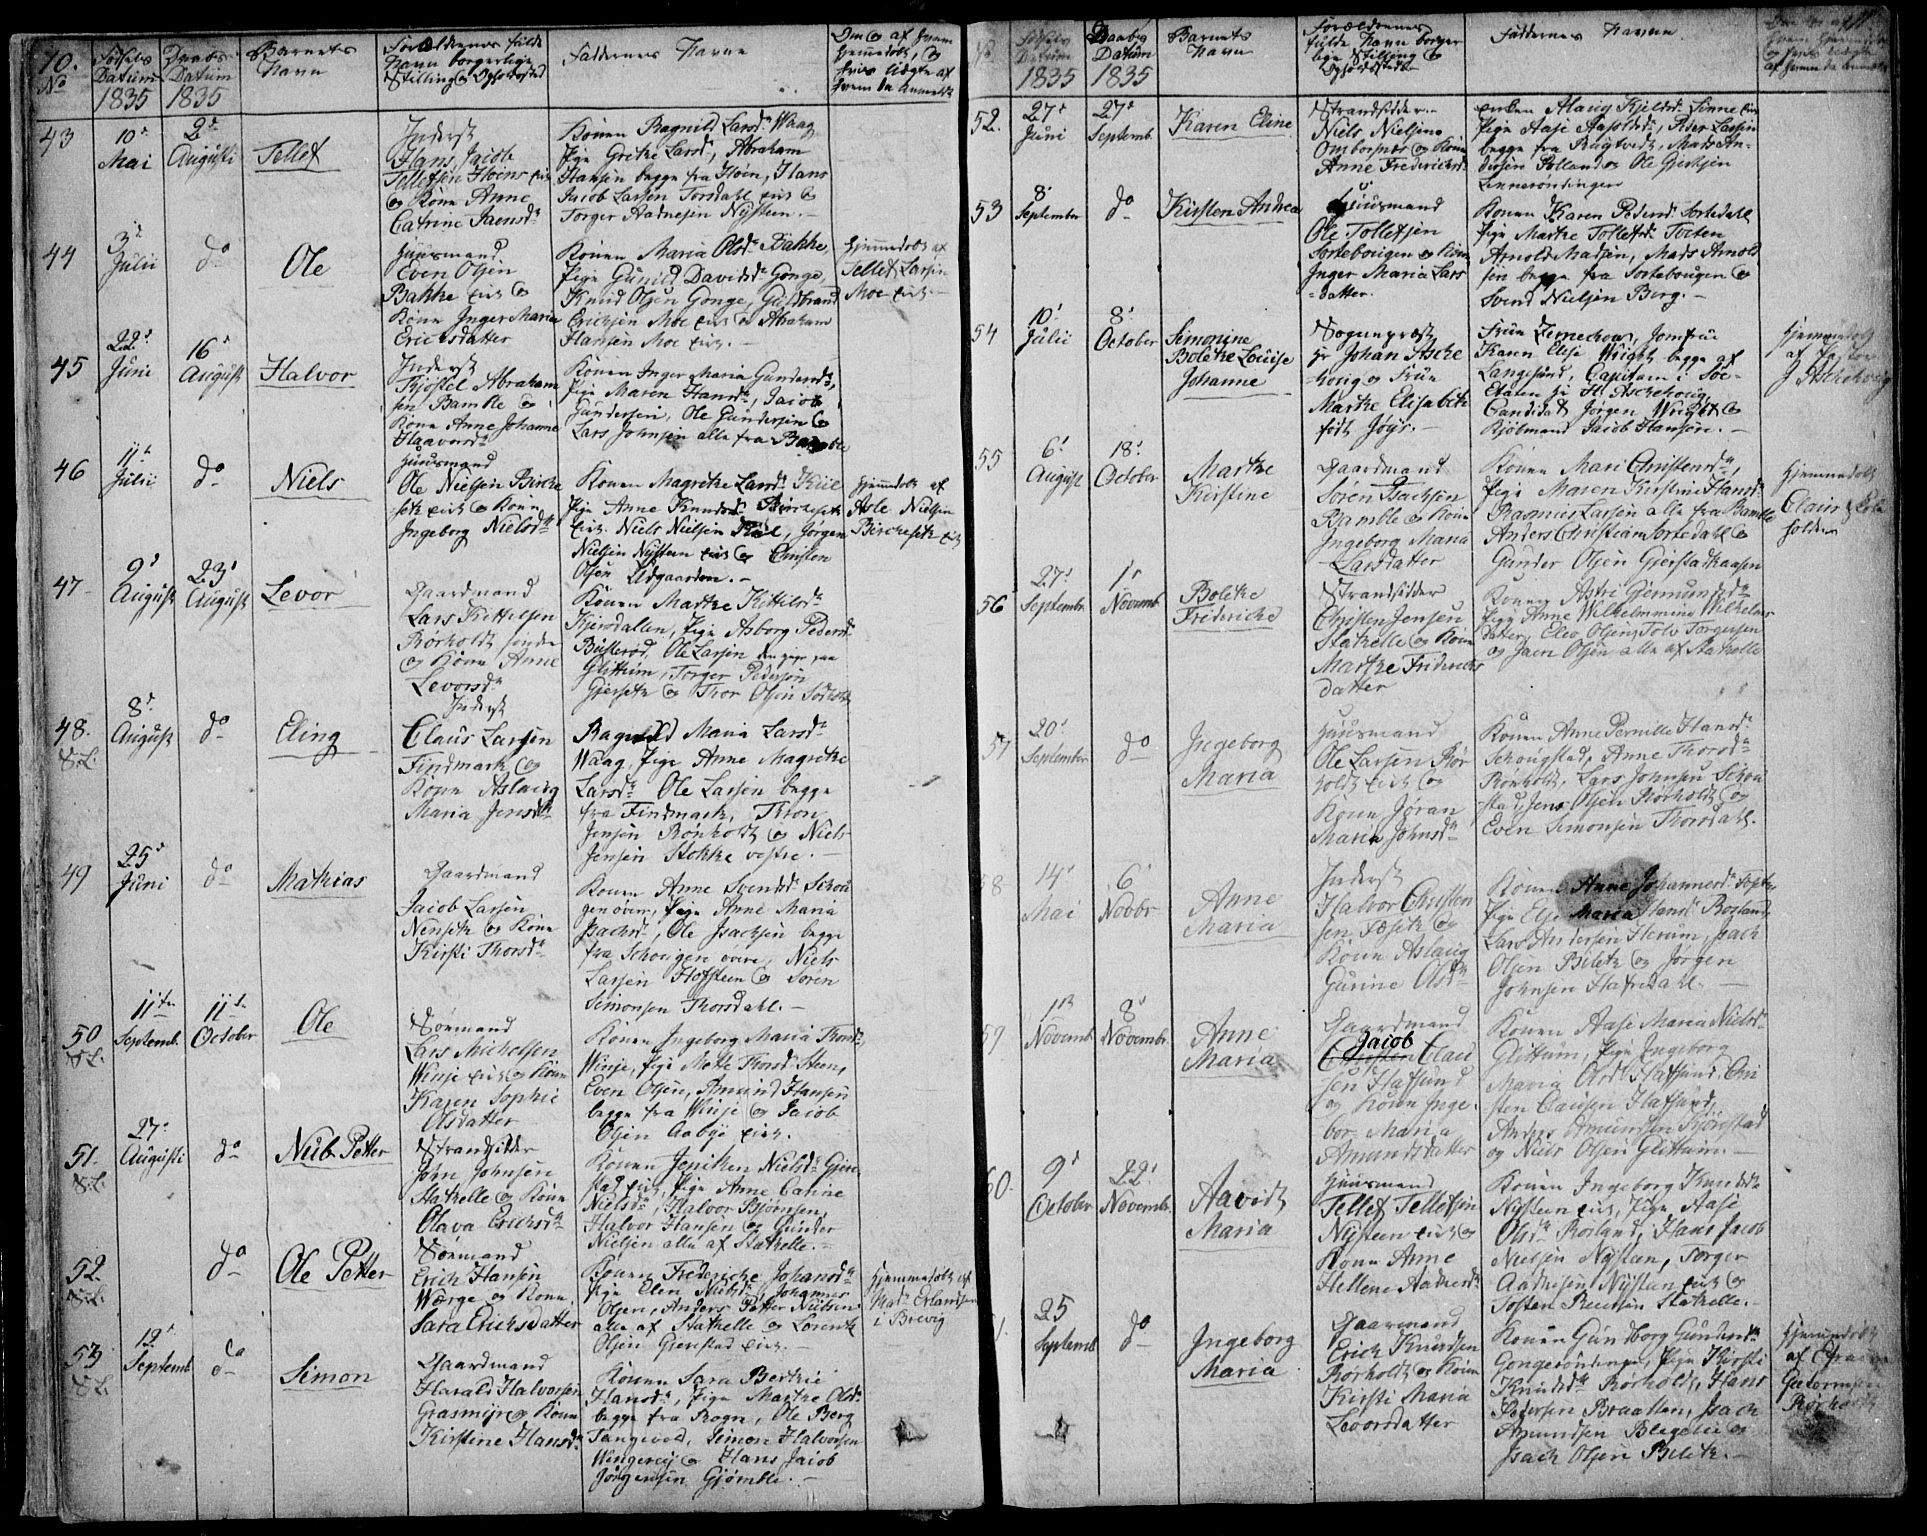 10.
No
Fødsels
Datum
1835
Daabs
Datum
1835
Barnets
Navn
Forældrenes fulde
Navn borgerlige
Stilling & Opholdssted
Faddernes Navne
Om & af hvem
hjemmedøbt, &
hvis Uægte af
hvem da anmeldt
43
10d
Mai
2d
Augusti
Tellef
Inderst
Hans Jacob
Tellefsen Hoens
& Kone Anne
Catrine Jaensdr
Konen Ragnild Larsdr Waag
Pige Grethe Larsd, Abraham
Hansen begge fra Hoen, Hans
Jacob Larsen Torsdahl &
Torger Aadnesen Nysteen.-
44
3d
Julii
do
Ole
Huusmand
Even Olsen
Bakke &
Kone Inger Maria
Ericksdatter
Konen Maria Olsdr Bakke,
Pige Gunild Davidsdr Gonge
Knud Olsen Gonge, Guldbrand
Ericksen Moe & Abraham
Hansen Moe
Hjemmedøbt af
Tellef Larsen
Moe
45
22d
Juni
16d
August
Halvor
Inderst
Kjøstel Abraham
sen Bamble &
Kone Anne Johanne
Haavorsdr
Konen Inger Maria Gundersdr,
Pige Maren Hansdr, Jacob
Gundersen, Ole Gundersen &
Lars Johnsen alle fra Bamble
46
11d
Julii
do
Niels
Huusmand
Ole Nielsen Bircke
seth & Kone
Ingeborg Nielsdr
Konen Magrethe Larsdr Kiil
Pige Anne Knudsdr Birkeseth
Niels Nielsen Kiil, Jørgen
Nielsen Nysteen & Christen
Olsen Udgaarden.-
Hjemmedøbt af
Asle Nielsen
Birckeseth
47
9d
August
23d
August
Levor
Gaardmand
Lars Kettilsen
Rørholdt søndre
& Kone Anne
Levorsdr
Konen Marthe Kittilsdr
Kjersdallen, Pige Asborg Pedersdr
Busterød, Ole Larsen
Glittum, Torger Pedersen
Gierseth & Thor Olsen
48.
8d
August
do
Eling
Inderst
Claus Larsen
Findmark &
Kone Aslaug
Maria Jensdr
Ragnild Maria Larsdr
Waag, Pige Anne Magrethe
Larsdr Ole Larsen begge
fra Findmark, Thron
Jensen Rønholt & Niels
Jensen Stokke vestre.-
49
25d
Juni
do
Mathias
Gaardmand
Jacob Larsen
Nenseth & Kone
Kirsti Thorsdr
Konen Anne Svendsdr Schou
gen øvre, Pige Anne Maria
Isachsdr, Ole Isachsen begge
fra Schougen øvre, Niels
Larsen Hofsteen & Søren
Simonsen Thorsdahl.-
50
11te
Septembr.
11te
October
Ole
Sømand
Lars Michelsen
Winje & Kone
Karen Sophie
Olsdatter
Konen Ingeborg Maria Thorsdr
Winje, Pige Mette Thorsdr Steen,
Even Olsen, Amund Hansen
begge fra Winje & Jacob
Olsen Aabye
51.
27d
Augusti
do
Neils Petter
Strandsidder
John Johnsen
Stathelle & Kone
Olava Ericksdr
Konen Jeniken Nielsdr Gjere
stad, Pige Anne Catrine
Nielsdr, Halvor Bjørnsen,
Halvor Hansen & Gunder
Nielsen alle af Stathelle.
52.
do
Ole Petter
Sømand
Erich Hansen
Wærge & Kone
Sara Ericksdatter
Konen Fredericke Johansdr
Pige Elen Nielsdr, Johannes
Olsen, Anders Petter Nielsen
alle af Stathelle & Lorentz
Olsen Gierestad
Hjemmedøbt af
Mad. Erlandsen
i Brevig
53
12d
Septemb
do
Simon
Gaardmand
Harald Halvorsen
Grasmyr & Kone
Kirstine Hansdr
Konen Sara Berthie
Hansdr, Pige Marthe Olsdr
begge fra Rogn, Ole Berg
Tangvald, Simon Halvorsen
Wingereie & Hans Jacob
Jørgensen Gjømle.-
11
No
Fødsels
Datum
1835
Daabs
Datum
1835
Barnets
Navn
Forældrenes
fulde Navn borger
lige Stilling &
Opholdssted
Faddernes Navne.
52.
27d
Juni
27d
Septemb
Karen Eline
Strandsidder
Niels Nielsen
Omborsnæs & Kone
Anne Fredericksdr
Enken Maug Kjeldsdr Tinne
Pige Aase Aasoldsdr, Peder Larsen
begge fra Rugtvedt, Mads An-
dersen Rolland & Ole Giertsen
Lennerøndingen
53
8d
September
do
Kirsten Andrea
Huusmand
Ole Tollefsen
Sortebougen & Kone
Inger Maria Lars
-datter.
Konen Karen Pedersdr Sortedahl
Pige Marthe Tollefsdr Toeten
Arnold Madsen, Mads Arnold
sen begge fra Sortebougen &
Svend Nielsen Berg.-
54
10d
Julii
8d
October
Simonine
Bolethe Louise
Johanne
Sognepræst
Hr Johan Asche
houg & Frue
Marthe Elisabeth
født Jøys.-
Frue Zernechow, Jomfrue
Karen Elise Wright begge af
Langesund, Capitain i Søe-
Etaten Hr H. Aschehoug
Candidat Jørgen Wright &
Kjøbmand Jacob Hansen.-
Hjemmedøbt
af Pastor
J Aschehoug
55
6d
August
18d
October
Marthe
Kirstine
Gaardmand
Søren Isachsen
Bamble & Kone
Ingeborg Maria
Larsdatter
Konen Mari Christensdr,
Pige Maren Kirstine Hansdr
Rasmus Larsen alle fra Bamble
Anders Christian Sortedahl &
Gunder Olsen Gjerstadhaasen
Hjemmedøbt
56
27d
Septembr
1d
Novemb
Bolethe
Fredericke
Strandsidder
Christen Jensen
Stathelle & Kone
Marthe Fridericks
datter
Konen Astri Gemundsdr
Pige Anne Wilhelmmine Wilhelms
datter, Elev Olsen, Tolv Torgersen
& Jaen Olsen alle af Stathelle
57
20d
September
do
Ingeborg
Maria
Huusmand
Ole Larsen Rør
holdt &
Kone Jøran
Maria Johnsdr
Konen Anne Pernille Hansdr
Schougstad, Anne Thorsdr
Rønholdt, Lars Johnsen Schou
stad, Jens Olsen Rørholdt &
Even Simonsen Thorsdahl.
58
14d
Mai
6d
Novbr
Anne
Maria
Inderst
Halvor Christen
sen &
Kone Aslaug
Gurine Olsdr
Konen Anne Johannesdr
Pige Else Maria Hansdr Rosland
Lars Andersen Herum, Isach
Olsen Bileth & Jørgen
Johnsen Hafredahl.-
59
1ste
Novemb
8d
Novembr
Anne
Maria
Gaardmand
Jacob
Christen Clau
sen Hafsund
& Kone Inge-
bor Maria
Amundsdatter
Konen Aase Maria Nielsdr
Glittum, Pige Ingeborg
Maria Olsdr Hafsund, Chri
sten Clausen Hafsund,
Anders Amundsen Kjørstad
& Niels Olsen Glittum.-
60.
9d
October
22d
Novembr
Aavidt
Maria
Huusmand
Tellef Tellefsen
Nysteen &
Kone Anne
Hellene Aadnesdr
Konen Ingeborg Knudsdr
Nysteen, Pige Aase
Olsdr Rosland, Hans Jacob
Nielsen Nysteen, Torger
Aadnesen Nysteen &
Tosten Stathelle.-
25
Septemb
do
Ingeborg
Maria
Gaarmand
Erick Knudsen
Rørholdt & Kone
Kirsti Maria
Levorsdatter
Konen Gundborg Gundersdr
Gongerøndingen, Pige Kirsti
Knudsdr Rørholdt, Hans
Pedersen Braatten, Isach
Amundsen Blegelie &
Isach Olsen Bileth.-
Hjemmedøbt
af
Guttormsen
Rørholdt